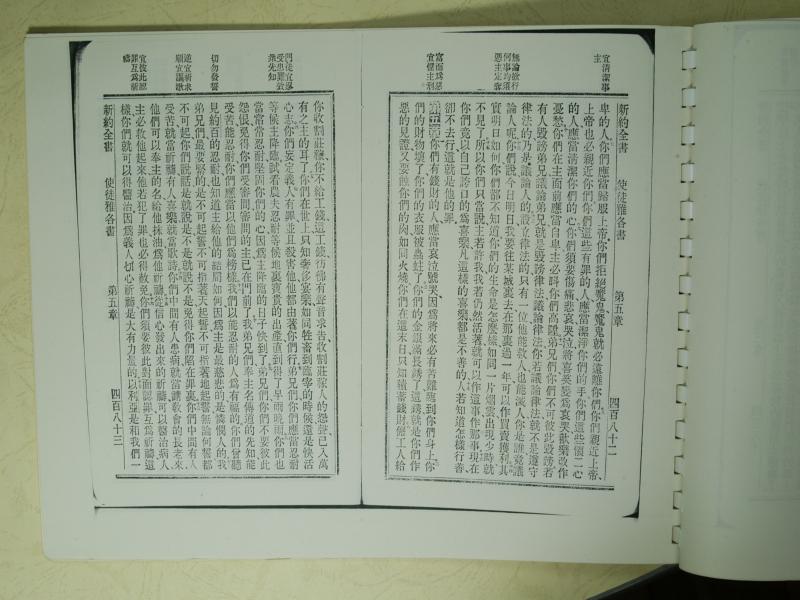 新約全書　使徒雅各書　第五章　四百八十二
宜清潔事
主
無論欲行
何事均須
憑主定奪
富而為惡
宜懼主刑
卑的人你們應當歸服上帝你們拒絕魔鬼魔鬼就必遠離你們你們親近上帝、
上帝也必親近你們你們這些有罪的人應當潔淨你們的手你們這些懷二心
的人應當清潔你們的心你們須要傷痛悲哀哭泣將喜笑變為哀哭歡樂改作
憂愁你們在主面前應當自卑主必叫你們高陞弟兄們你們不可彼此毀謗若
有人毀謗弟兄議論弟兄就是毀謗律法議論律法你若議論律法就不是遵守
律法的乃是議論人的設立律法的只有一位他能救人也能滅人你是誰竟議
論人呢你們說今日明日我要往某城裏去在那裏過一年可以作買賣獲利其
實明日如何你們都不知道你們的生命是怎麼樣如同一片烟雲出現少時就
不見了所以你們只當說主若許我我若仍然活著就可以作這事作那事現在
你們竟以自己誇口的為喜樂凡這樣的喜樂都是不善的人若知道怎樣行善
卻不去行這就是他的罪、
第五章你們有錢財的人應當哀泣號哭因為將來必有苦難臨到你們身上你
們的財物壞了你們的衣服被蟲蛀了你們的金銀滿長銹了這銹就是你們作
惡的見證又要蝕你們的肉如同火燒你們在這末日只知積蓄錢財傭工人給
們徒宜忍
受患難效
衆先知
切勿發誓
宜彼此認
罪互為祈
禱
你收割莊稼你不給工錢這工錢彷彿有聲音求告收割莊稼人的怨聲已入萬
有之主的耳了你們在世上只知奢侈宴樂如同牲畜到臨宰的時候還是快活
心志你們妄定義人有罪並且殺害他他都由著你們行弟兄們你們應當忍耐
等候主降臨試看農夫忍耐等候地裏寶貴的出產直到得了早雨晚雨你們也
當常常忍耐堅固你們的心因為主降臨的日子快到了弟兄們你們不要彼此
怨恨免得你們受審問審問的主已在門前了我弟兄們奉主名傳道的先知能
受苦能忍耐你們應當以他們為榜樣我們以能忍耐的人為有福的你們曾聽
見約百的忍耐也知道主給他的結局如何因為主是最慈悲的是憐憫人的我
弟兄們最要緊的是不可起誓不可指著天起誓不可指著地起誓無論何誓都
不可起你們說話是就說是不是就說不是免得你們陷在罪裏你們中間有人
受苦就當祈禱有人喜樂就當歌詩你們中間有人患病就當請教會的長老來
他們可以奉主的名給他抹油為他祈禱從信心發出來的祈禱可以醫治病人、
主必救他起來他若犯了罪也必得赦免你們須要彼此對面認罪互為祈禱這
樣你們就可以得醫治因為義人切心祈禱是大有力量的以利亞是和我們一
新約全書　使徒雅各書　第五章　四百八十三